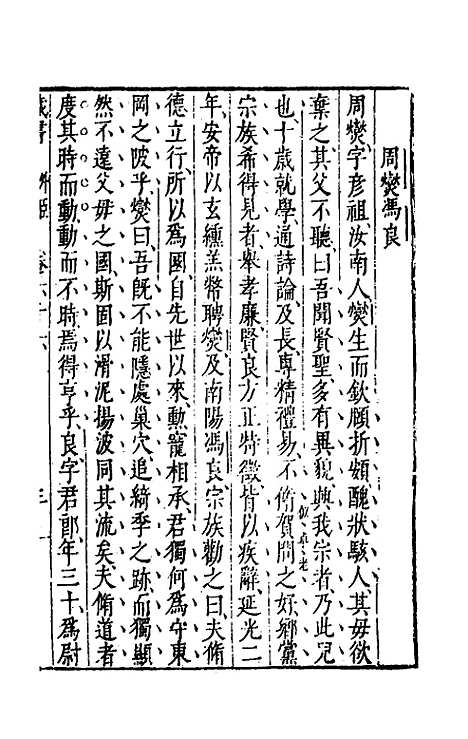 周燮馮良
周燮、字彦祖、汝南人、燮生而欽頤折頞、醜狀駭人、其毋欲
棄之、其父不聽、曰、吾聞賢聖、多有異貌、興我宗者、乃此兒
也、十歲就學、通詩論、及長、專精禮易、不脩賀問之好、鄉黨
宗族希得見者、舉孝廉、賢良方正、特徵、皆以疾辭、延光二
年、安帝以玄纁羔幣聘燮、及南陽馮良、宗族勸之曰、夫脩
德立行、所以爲國、自先世以來、勳寵相承、君獨何爲守東
岡之陂乎、燮曰、吾旣不能隱處巢穴、追綺季之跡、而獨顯
然不遠父毋之國、斯固以滑泥揚波、同其流矣、夫脩道者
度其時而動、動而不時、焉得亨乎、良字君郎、年三十、爲尉
藏書 卷六十六 三